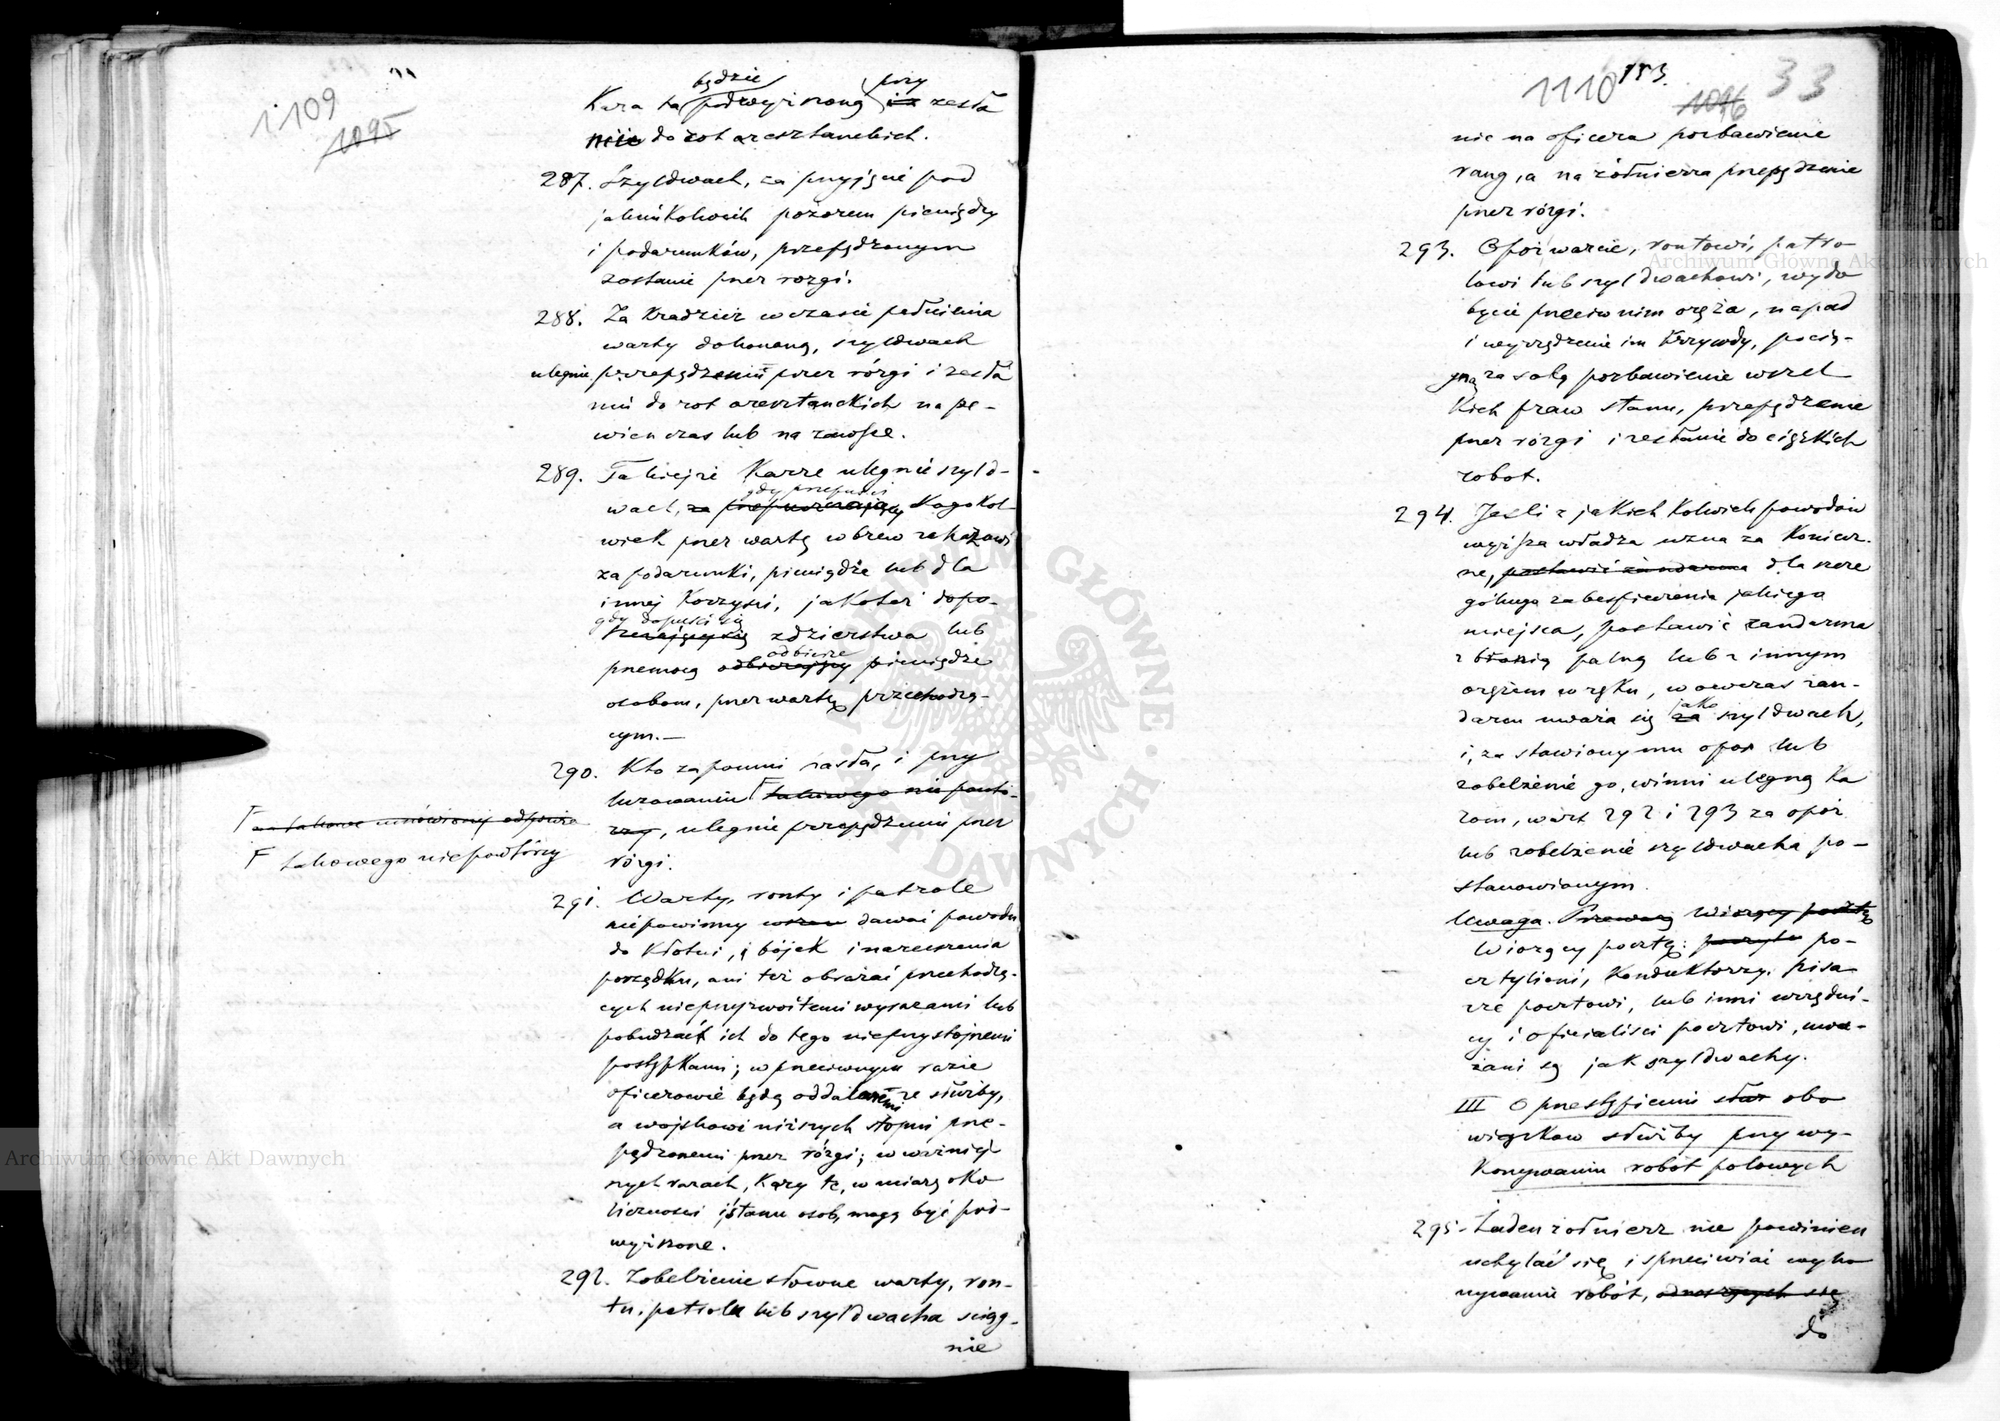 1109
1095
będzie przy
Kara ta podwyższoną iz zesła
nie do rot aresztanckich.
287. Szyldwach, za przyjęcie pod
jakimkolwiek pozorem pieniędzy
i podarunków, przepędzonym
zostanie przez rózgi.
288. Za Kradzież w czasie pełnienia
warty dokonaną, szyldwach
ulegnie przepędzeniu przez rózgi i zesła
niu do rot aresztanckich na pe-
wien czas lub na zawsze.
289. Takiejże Karze ulegnie szyld-
gdy przepuści
wach, za przepuszczający Kogokol
wiek przez wartę wbrew zakazowi
za podarunki, pieniądze lub dla
innej Korzyści, jakoteż dopo-
gdy dopuści się
szczający się zdzierstwa lub
odbierze
przemocą odbierający pieniądze
osobom, przez wartę przechodzą-
cym.—
290. Kto zapomni hasła, i przy
luzowaniu Γ takowego nie powtó-
rzy, ulegnie przepędzeniu przez
rózgi.
Γ na takowe umówionej odpowie
Γ takowego niepowtórzy
291. Warty, ronty i patrole
niepowinny dawać powodu
do Kłótni, i bójek i naruszenia
porządku, ani też obrażać przechodzą-
cych nieprzyzwoitemi wyrazami lub
pobudzać ich do tego nieprzystojnemi
postępkami; w przeciwnym razie
oficerowie będą oddaleniemi ze służby,
a wojskowi niższych stopni prze-
pędzonemi przez rózgi; w ważniej
szych razach, Kary te, w miarę oko
liczności i stanu osób, mogą być pod-
wyższone.
292. Zobelżenie słowne warty, ron-
tu, patrolu lub szyldwacha ściąg-
nie
1110 153.
1096 33
nie na oficera pozbawienie
rang, a na żołnierza przepędzenie
przez rózgi.
293. Opór warcie, rontowi, patro-
lowi lub szyldwachowi, wydo
bycie przeciw nim oręża, napad
i wyrządzenie im Krzywdy, pocią-
gną za sobą pozbawienie wszel
Kich praw stanu, przepędzenie
przez rózgi i zesłanie do ciężkich
robot.
294. Jeśli z jakich Kolwiek powodów
wyższa władza uzna za Koniecz-
ne, postawić żandarma dla szcze
gólnego zabespieczenia jakiego
miejsca, postawić żandarma
z bronią palną lub z innym
orężem w ręku, wowczas żan-
jako
darm uważa się za szyldwach,
i, za stawiony mu opór lub
zobelżenie go, winni ulegną Ka
rom, w art 292 i 293 za opór
lub zobelżenie szyldwacha po-
stanowionym.
Uwaga. Przewożą Wiozący pocztę
Wiozący pocztę: poczyl po-
cztylioni, Konduktorzy, pisa
rze pocztowi, lub inni urzędni-
cy i oficialiści pocztowi, uwa-
żani są jak szyldwachy.
III O przestąpieniu służ obo
wiązków służby przy wy-
Konywaniu robot polowych
295. Żaden żołnierz nie powinien
uchylać się i sprzeciwiać wyko
nywaniu robót, odnoszących się
do
Archiwum Główne Akt Dawnych
Archiwum Główne Akt Dawnych